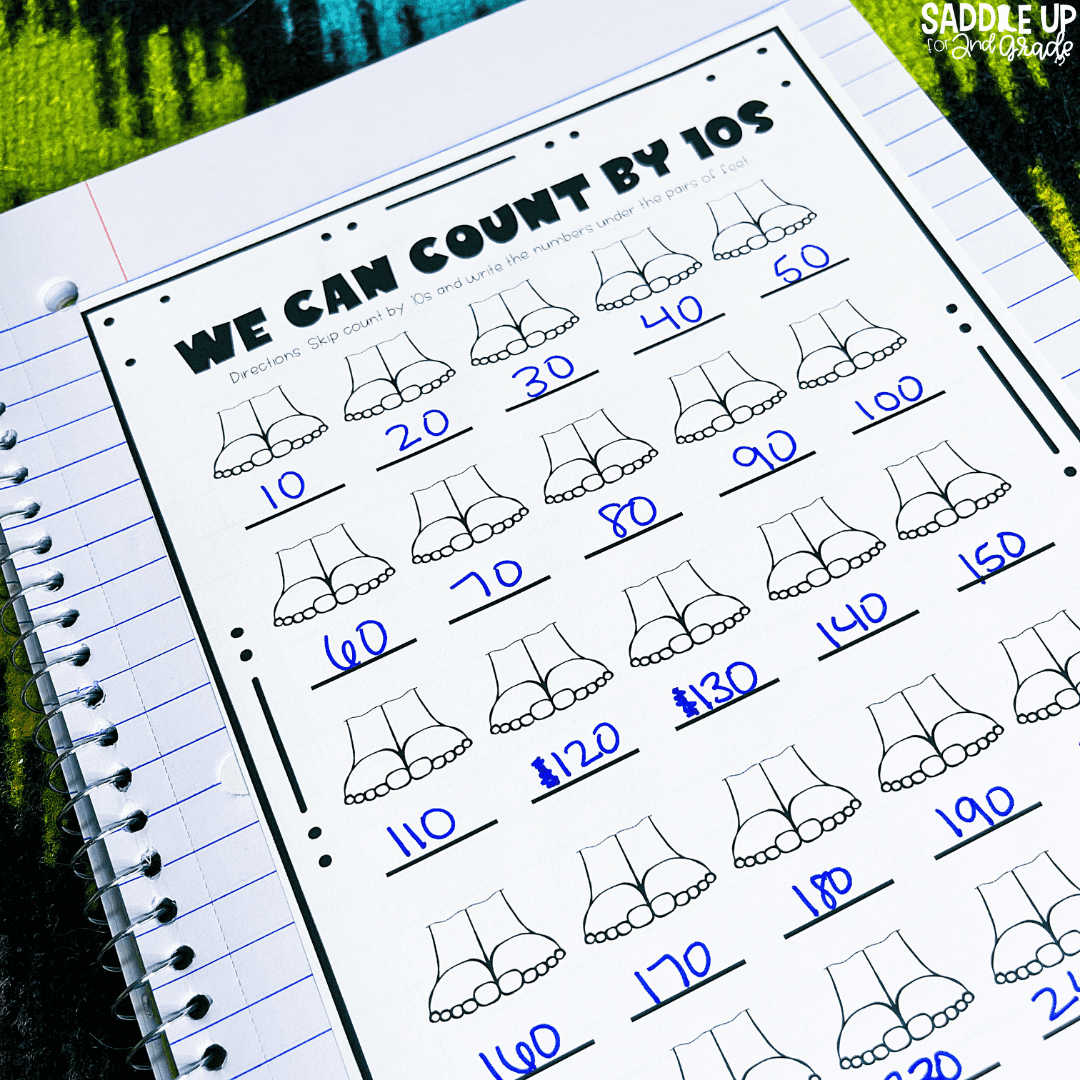 SADDLE UP
for 2nd Grade
WE CAN COUNT BY 10S
Directions: Skip count by 10s and write the numbers under the pairs of feet
10 20 30 40 50
60 70 80 90 100
110 120 130 140 150
160 170 180 190